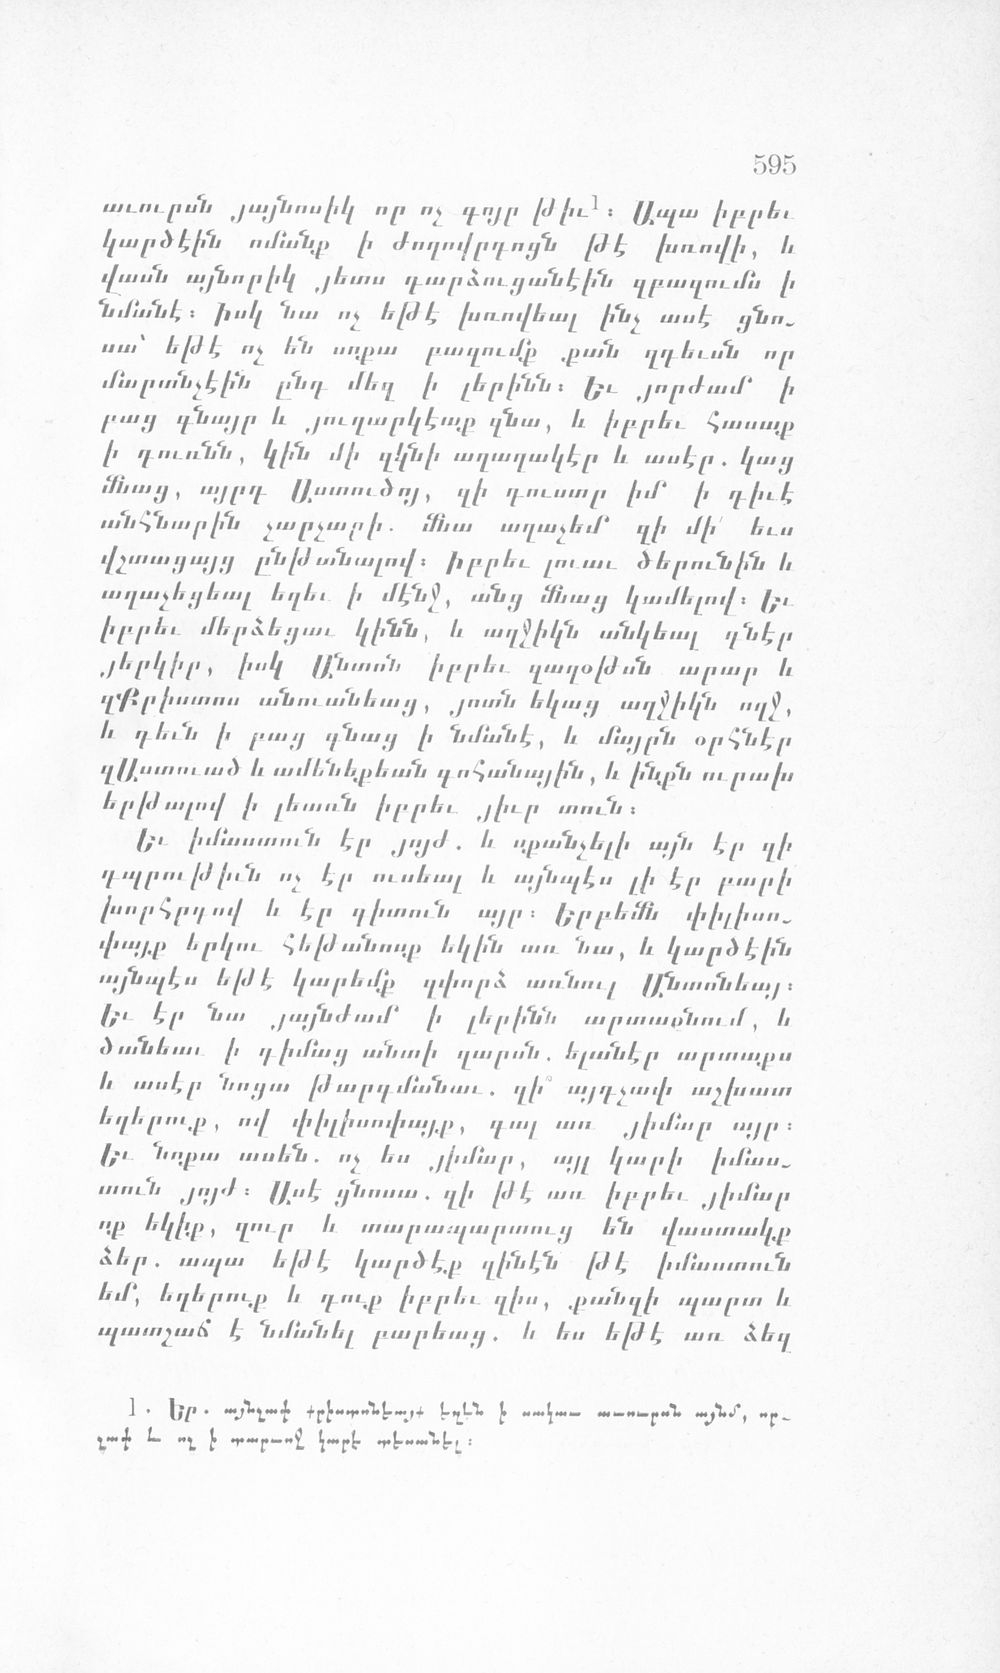 595
աւուրսն յայնոսիկ որ ոչ գոյր թիւ1։ Ապա իբրեւ
կարծէին ոմանք ի ժողովրդոցն թէ խռովի, և
վասն այնորիկ յետս դարձուցանէին զբազումս ի
նմանէ։ իսկ նա ոչ եթէ խռովեալ ինչ ասէ ցնո-
սա՝ եթէ ոչ են սոքա բազումք քան զդեւսն որ
մարտնչէին ընդ մեզ ի լերինն։ Եւ յորժամ ի
բաց գնայր և յուղարկէաք զնա, և իբրեւ հասաք
ի դուռնն, կին մի զկնի աղաղակէր և ասէր. կաց
մնաց, այրդ Աստուծոյ, զի դուստր իմ ի դիւէ
անհնարին չարչարի. մնա աղաչեմ զի մի՛ եւս
վշտացայց ընթանալով։ իբրեւ լուաւ ծերունին և
աղաչեցեալ եղեւ ի մէնջ, անց մնաց կամելով։ Եւ
իբրեւ մերձեցաւ կինն, և աղջիկն անկեալ դնէր
յերկիր, իսկ Անտոն իբրեւ զաղօթսն արար և
զՔրիստոս անուանեաց, յոտն եկաց աղջիկն ողջ,
և դեւն ի բաց գնաց ի նմանէ, և մայրն օրհնէր
զԱստուած և ամենեքեան գոհանային, և ինքն ուրախ
երթալով ի լեառն իբրեւ յիւր տուն։
Եւ իմաստուն էր յոյժ. և սքանչելի այն էր զի
դպրութիւն ոչ էր ուսեալ և այնպէս լի էր բարի
խորհրդով և էր գիտուն այր։ Երբեմն փիլիսո-
փայք երկու հեթանոսք եկին առ նա, և կարծէին
այնպէս եթէ կարեմք զփորձ առնուլ Անտոնեայ։
Եւ էր նա յայնժամ ի լերինն արտաքնում, և
ծանեաւ ի դիմաց անտի զարսն. ելանէր արտաքս
և ասէր նոցա թարգմանաւ. զի՞ այդչափ աշխատ
եղերուք, ով փիլիսոփայք, գալ առ յիմար այր։
Եւ նոքա ասեն. ոչ ես յիմար, այլ կարի իմաս-
տուն յոյժ։ Ասէ ցնոսա. զի թէ առ իբրեւ յիմար
ոք եկիք, զուր և տարապարտուց են վաստակք
ձեր. ապա եթէ կարծէք զինէն թէ իմաստուն
եմ, եղերուք և դուք իբրեւ զիս, քանզի պարտ և
պատշաճ է նմանել բարեաց. և ես եթէ առ ձեզ
1. Եր. այնչափ քրիստոնէայք եղեն ի սակաւ աւուրսն այնմ, որ-
չափ և ոչ ի տարւոջ կարէ տեսանել։